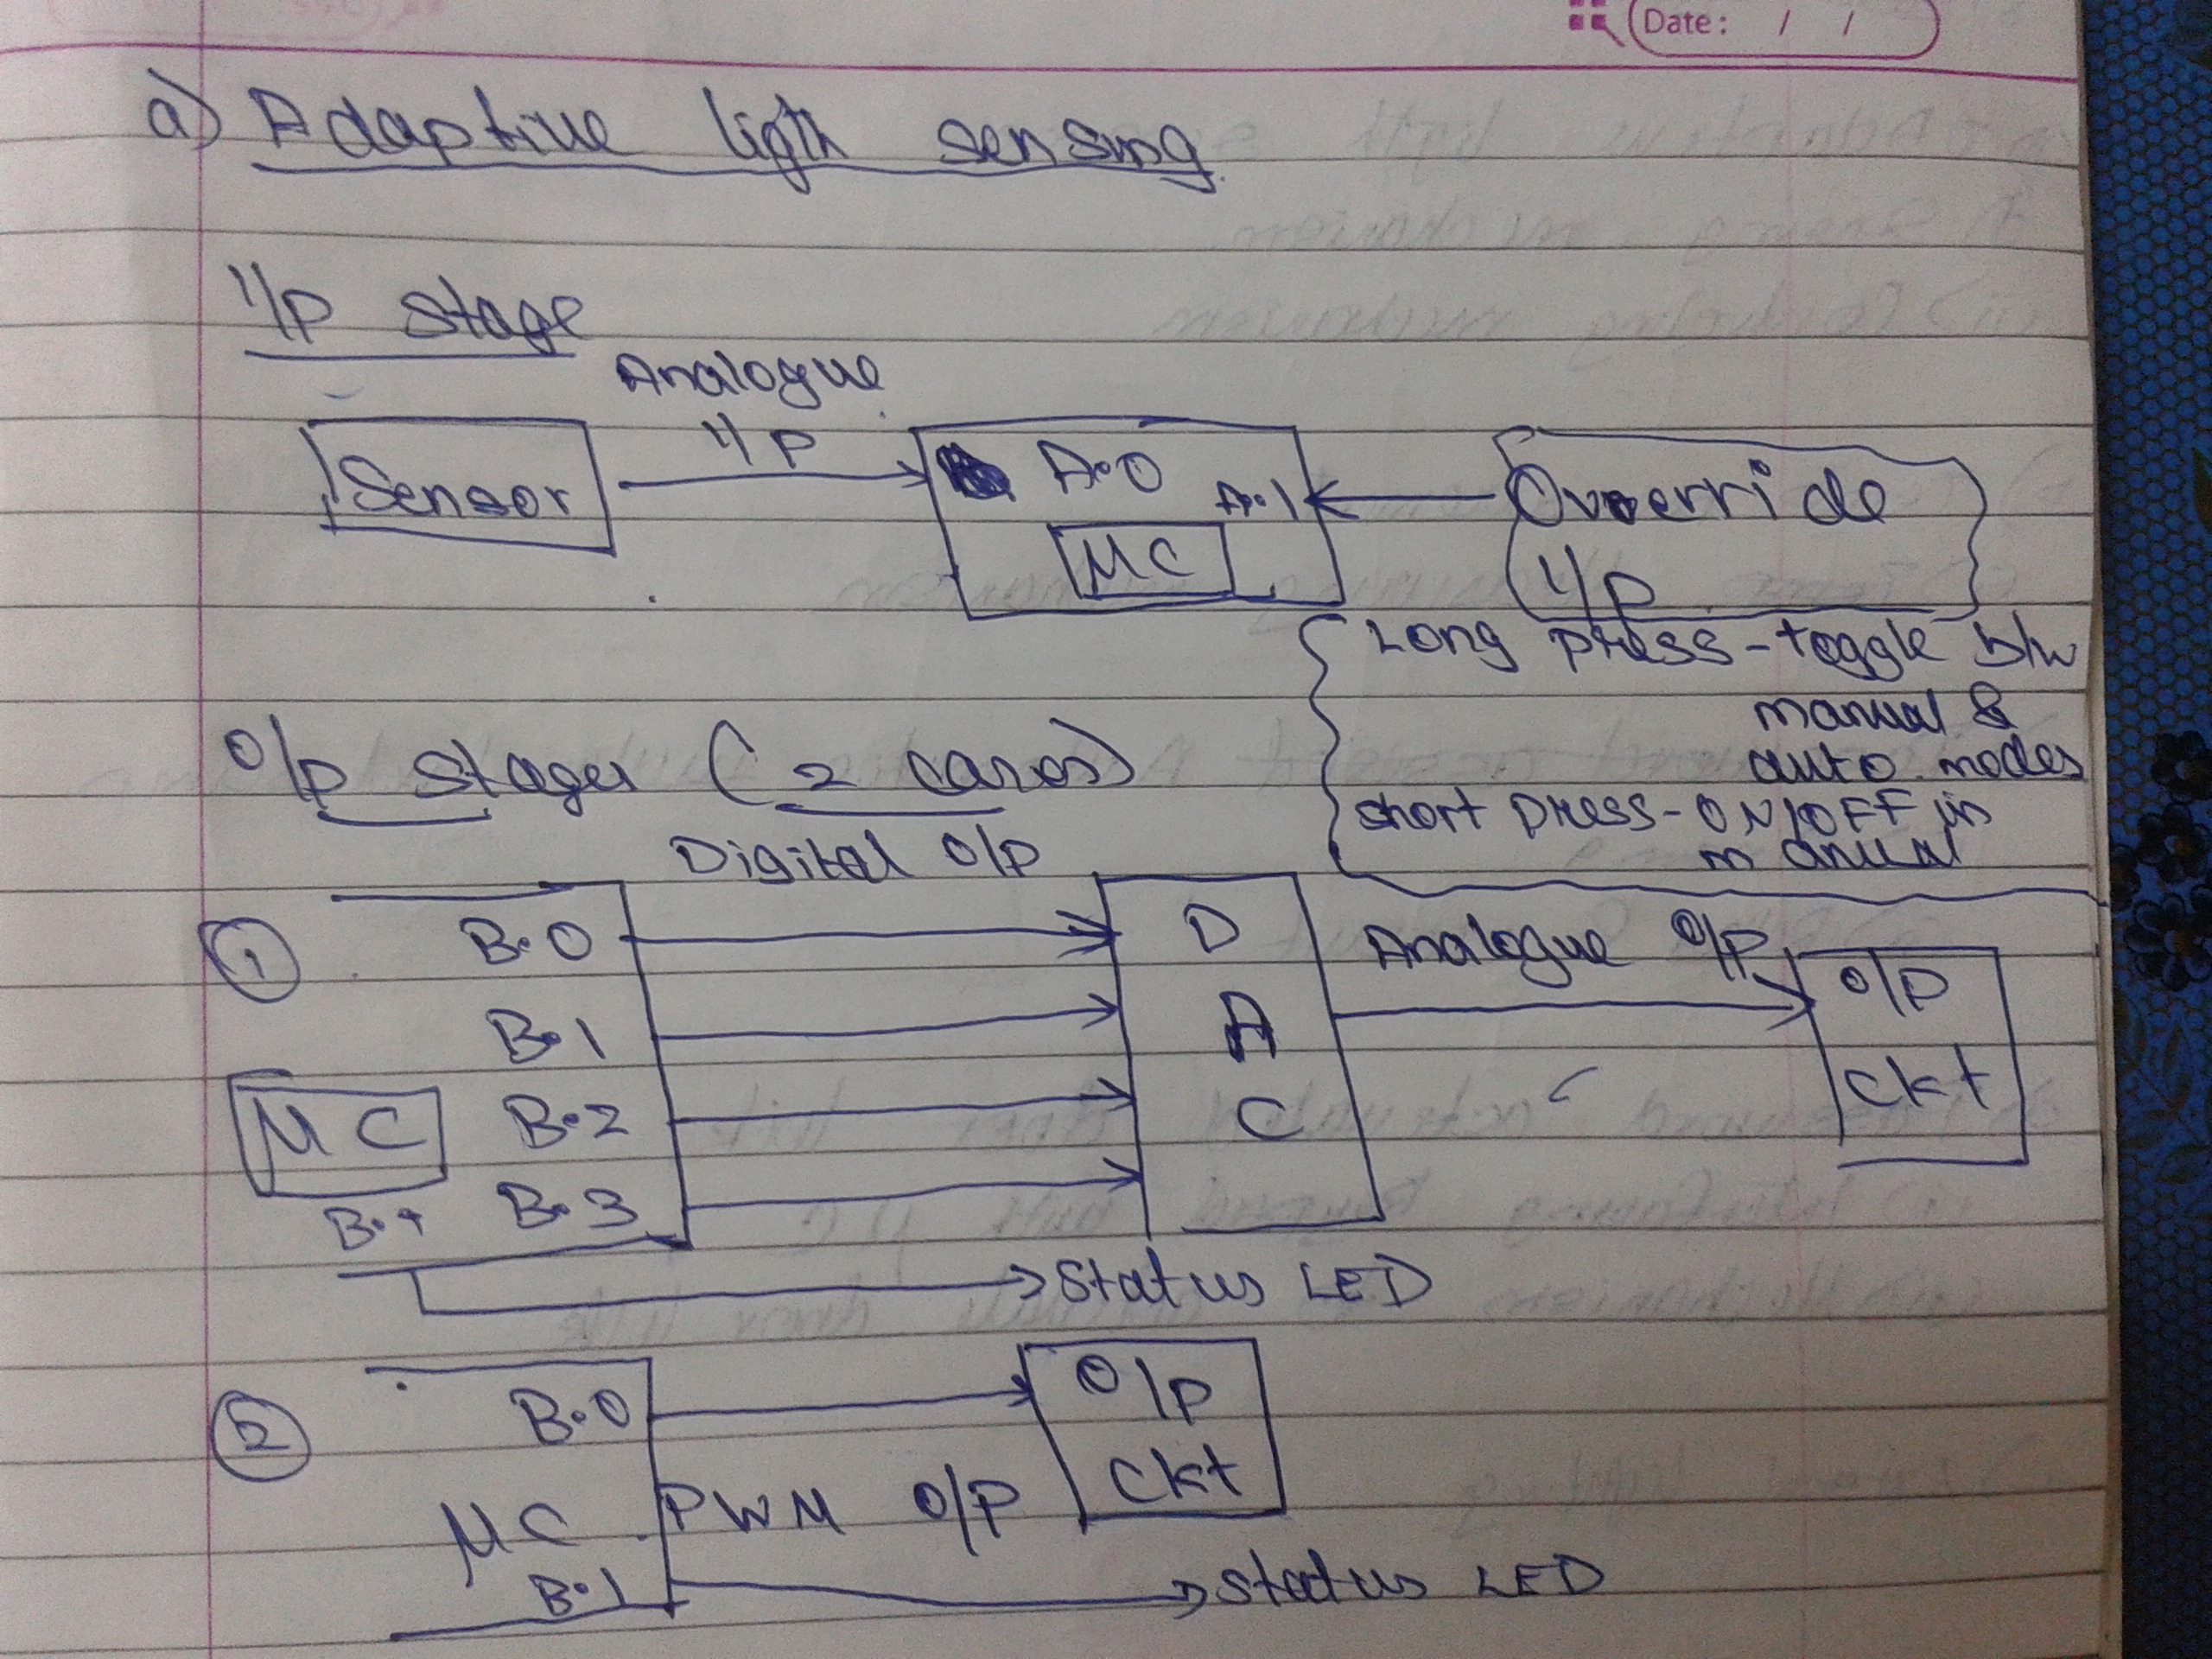 Date: / /
a) Adaptive ligth sensing
I/P stage
Analogue
I/P
Sensor
A.0
A.1
MC
Override
I/P
Long press - toggle b/w
manual &
auto modes
short press - ON/OFF in
manual
O/p stages (2 cases)
Digital O/P
1
B.0
B.1
B.2
B.3
MC
D
A
C
Analogue O/P
O/P
Ckt
Status LED
2
B.0
MC
B.1
PWM O/P
O/P
Ckt
Status LED